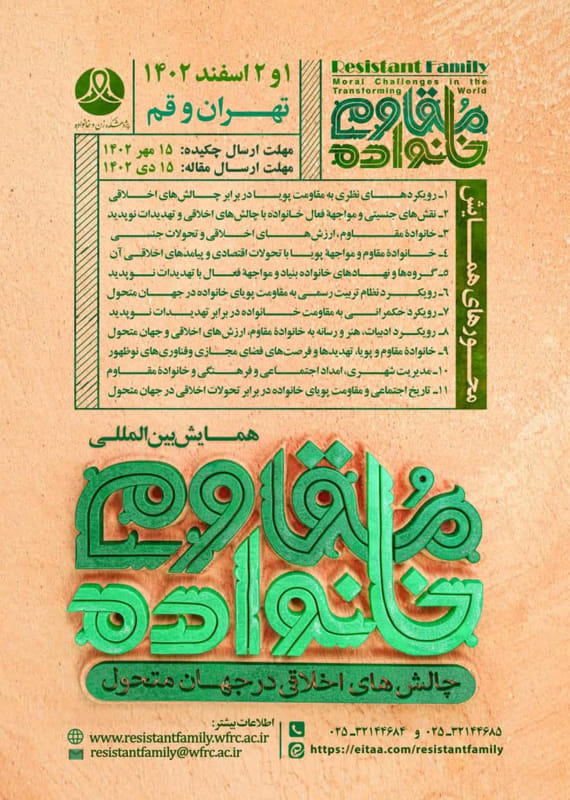 Resistant Family
Moral Challenges in the
Transforming World
مُقاوم
خانواده
۱و۲ اسفند ۱۴۰۲
تهـران و قم
پژوهشکده زن و خانواده
مهلت ارسال چکیده: ۱۵ مهر ۱۴۰۲
مهلت ارسال مقاله: ۱۵ دی ۱۴۰۲
محورهای همایش
۱- رویکردهـای نظری به مقاومت پویـا در برابر چالش‌های اخلاقی
۲- نقش‌های جنسیتی و مواجهة فعال خانواده با چالش‌های اخلاقی و تهدیدات نوپدید
۳- خانوادة مقـاوم، ارزش‌هـای اخلاقـی و تحولات جنسـی
۴- خـانـوادة مقاوم و مواجهة پویـا با تحولات اقتصادی و پیامدهای اخلاقـی آن
۵- گـروه‌ها و نهـادهای خانواده بنیاد و مواجهة فعـال با تهدیدات نـوپدید
۶- رویکـرد نظام تربیت رسمـی به مقاومت پویای خانواده در جهـان متحول
۷- رویکرد حکمرانـی به مقاومت خـانـواده در برابر تهدیـدات نـوپدید
۸- رویکـرد ادبیات، هنر و رسانه به خانوادة مقاوم، ارزش‌های اخلاقی و جهان متحول
۹- خانوادة مقاوم و پویا، تهدیدها و فرصت‌های فضای مجازی وفناوری‌های نوظهور
۱۰- مدیریت شهـری، امداد اجتمـاعی و فرهـنگی و خانوادة مقـاوم
۱۱- تاریخ اجتماعی و مقاومت پویای خانواده در برابر تحولات اخلاقی در جهان متحول
همـایش بین‌المللـی
مُقاوم
خانواده
چالش‌های اخلاقی در جهـان متحول
اطلاعات بیشتر:
۰۲۵-۳۲۱۴۴۶۸۵ و ۰۲۵-۳۲۱۴۴۶۸۴
www.resistantfamily.wfrc.ac.ir
https://eitaa.com/resistantfamily
resistantfamily@wfrc.ac.ir